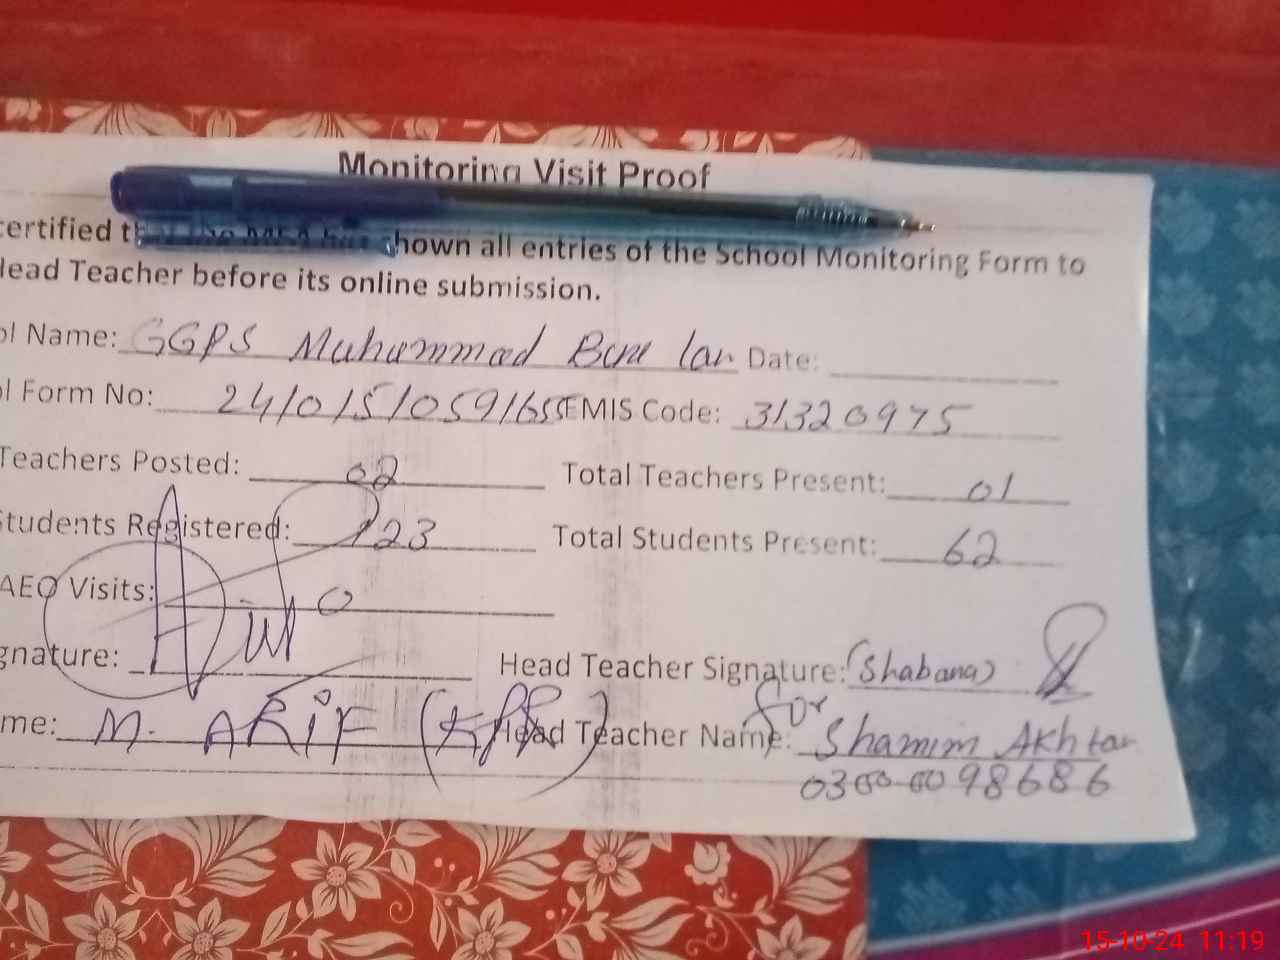 Monitoring Visit Proof
certified that the MEA has shown all entries of the School Monitoring Form to
Head Teacher before its online submission.
ol Name: GGPS Muhammad Date:
ol Form No: EMIS Code: 31320975
Teachers Posted: 02 Total Teachers Present: 01
Students Registered: 123 Total Students Present: 62
AEO Visits: 0
gnature: Head Teacher Signature: (Shabana)
me: M. ARIF Head Teacher Name: for Shamim Akhtar
98686
15-10-24 11:19